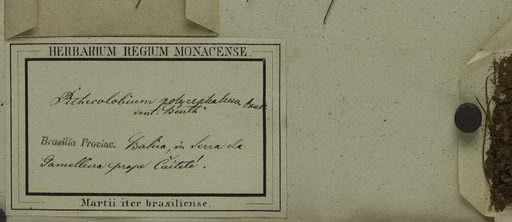 HERBARIUM REGIUM MONACENSE.
Pithecolobium polycephalum Benth
sent. Benth
Brasilia Provinc. Bahia, in Serra da
Gamelleira prope Caiteté.
Martii iter brasiliense.